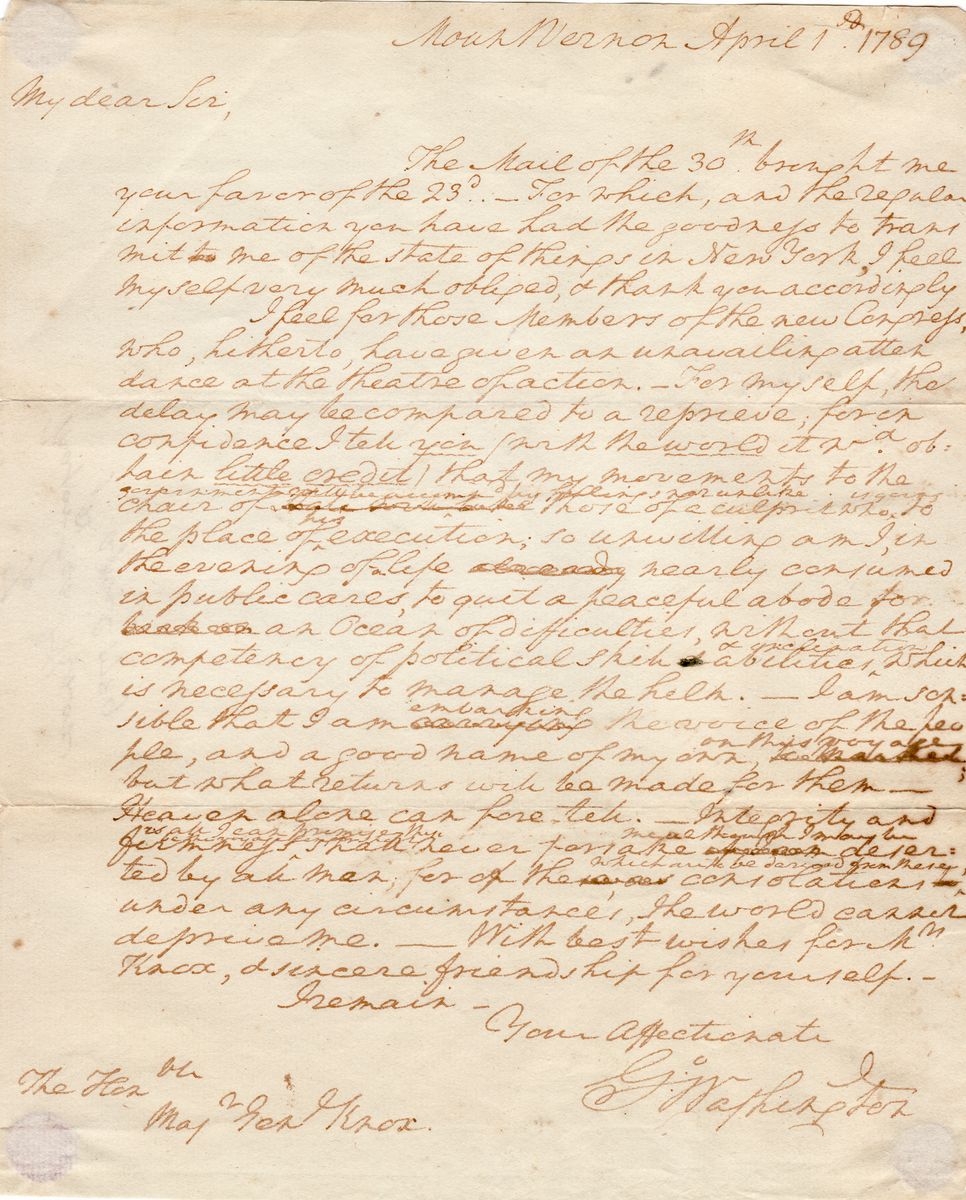 Mount Vernon April 1st. 1789
My dear Sir,
The Mail of the 30th. brought me
your favor of the 23d. — For which, and the regular
information you have had the goodness to trans
mit to me of the state of things in New York, I feel
myself very much obliged, & thank you accordingly
I feel for those Members of the new Congress,
who, hitherto, have given an unavailing atten
dance at the theatre of action. — For myself, the
delay may be compared to a reprieve; for in
confidence I tell you (with the world it wd. ob:
tain little credit) that my movements to the
government will be accompanied by feelings not unlike is going
chair of those of a culprit who to
his
the place of execution; so unwilling am I, in
the evening of life already nearly consumed
in public cares, to quit a peaceful abode for
an Ocean of difficulties, without that
& inclination
competency of political skill abilities, which
is necessary to manage the helm. — I am sen-
embarking
sible that I am carrying the voice of the peo
on this voyage
ple, and a good name of my own,
but what returns will be made for them —
Heaven alone can fore-tell. — Integrity and
is all I can promise
me although I may be
firmness shall never forsake deser:
which are to be derived from these,
ted by all men; for of the consolations
under any circumstances, the world cannot
deprive me. — With best wishes for Mrs
Knox, & sincere friendship for yourself. —
I remain —
Your Affectionate
Go Washington
The Honble
Majr Genl Knox.